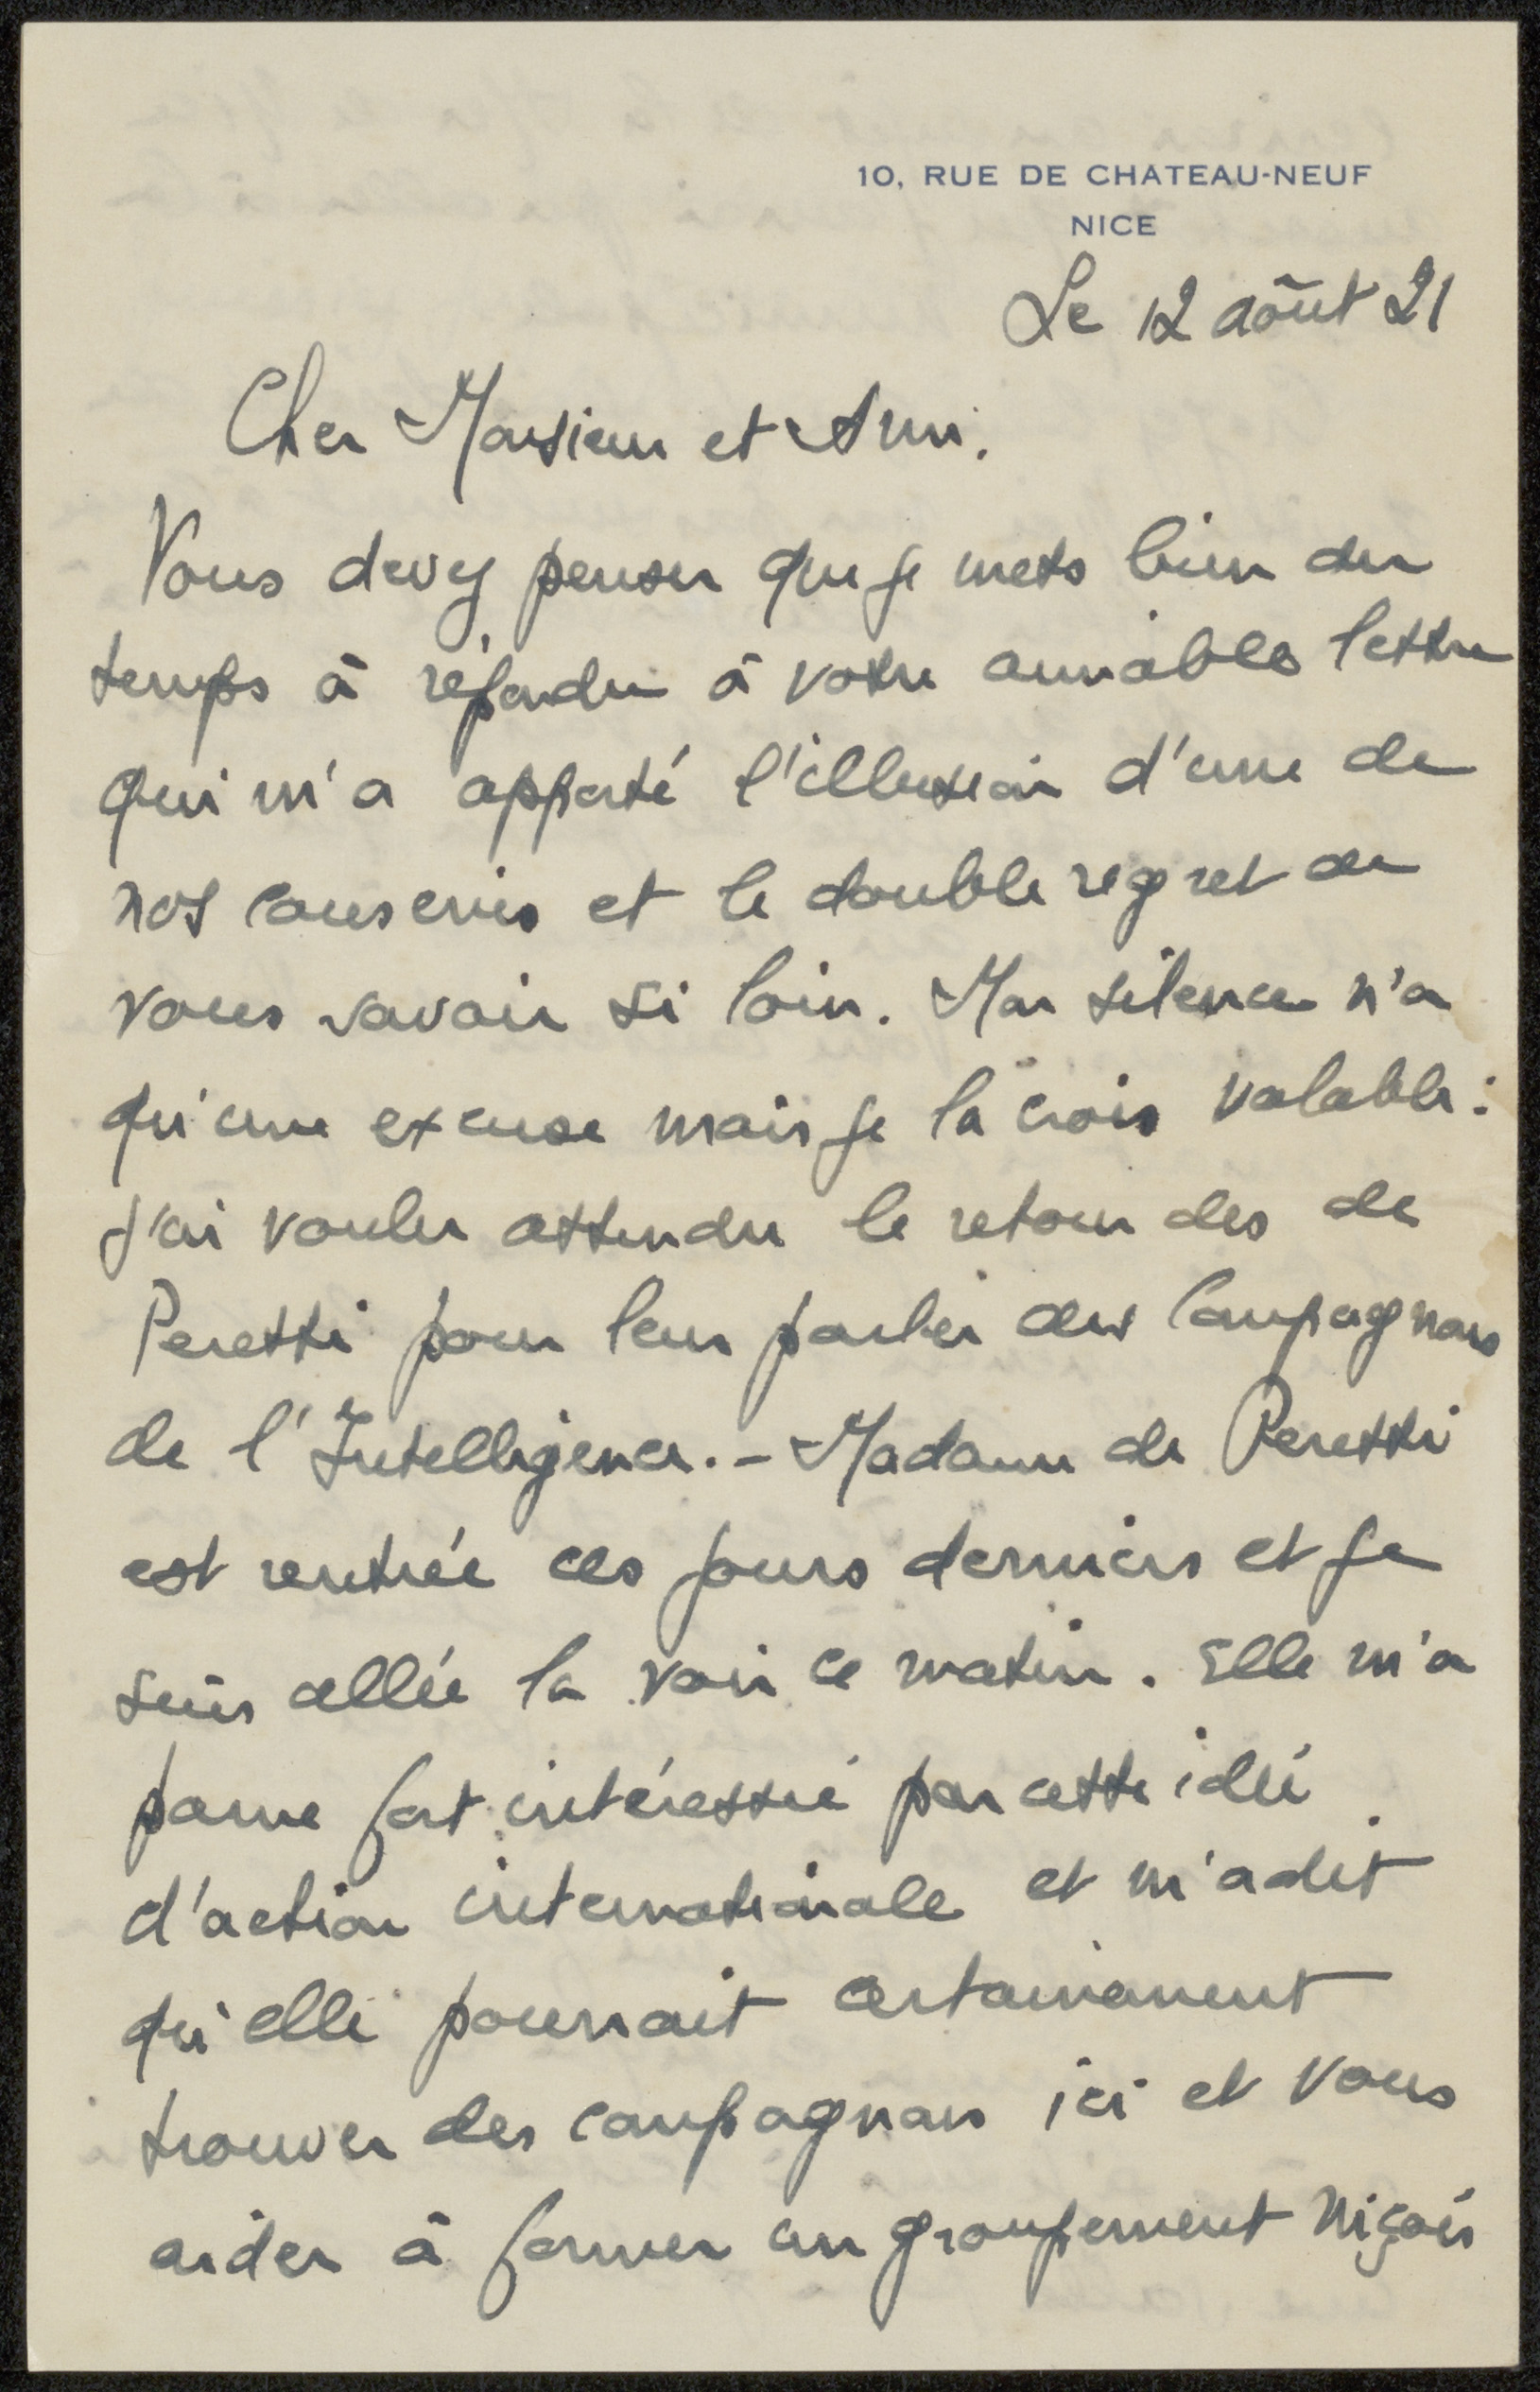 10, RUE DE CHATEAU-NEUF
NICE
Le 12 août 21
Cher Monsieur et Ami.
Vous devez penser que je mets bien du
temps à répondre à votre aimable lettre
qui m'a apporté l'illusion d'une de
nos causeries et le double regret de
vous savoir si loin. Mon silence n'a
qu'une excuse mais je la crois valable :
j'ai voulu attendre le retour des de
Peretti pour leur parler des Compagnons
de l'Intelligence. - Madame de Peretti
est rentrée ces jours derniers et je
suis allée la voir ce matin. Elle m'a
parue fort intéressée par cette idée
d'action internationale et m'a dit
qu'elle pourrait certainement
trouver des compagnons ici et vous
aider à former un groupement niçois